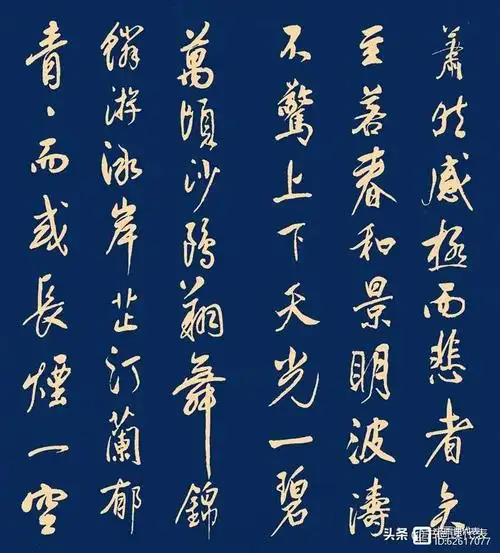 蕭然感極而悲者矣
至若春和景明波濤
不驚上下天光一碧
萬頃沙鷗翔舞錦
鱗游泳岸芷汀蘭郁
青、而或長煙一空
头条
课代表
ID:62617077